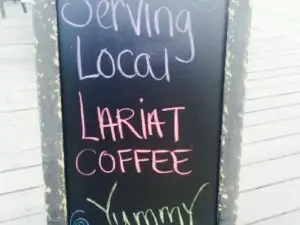 Serving
Local
LARIAT
COFFEE
Yummy